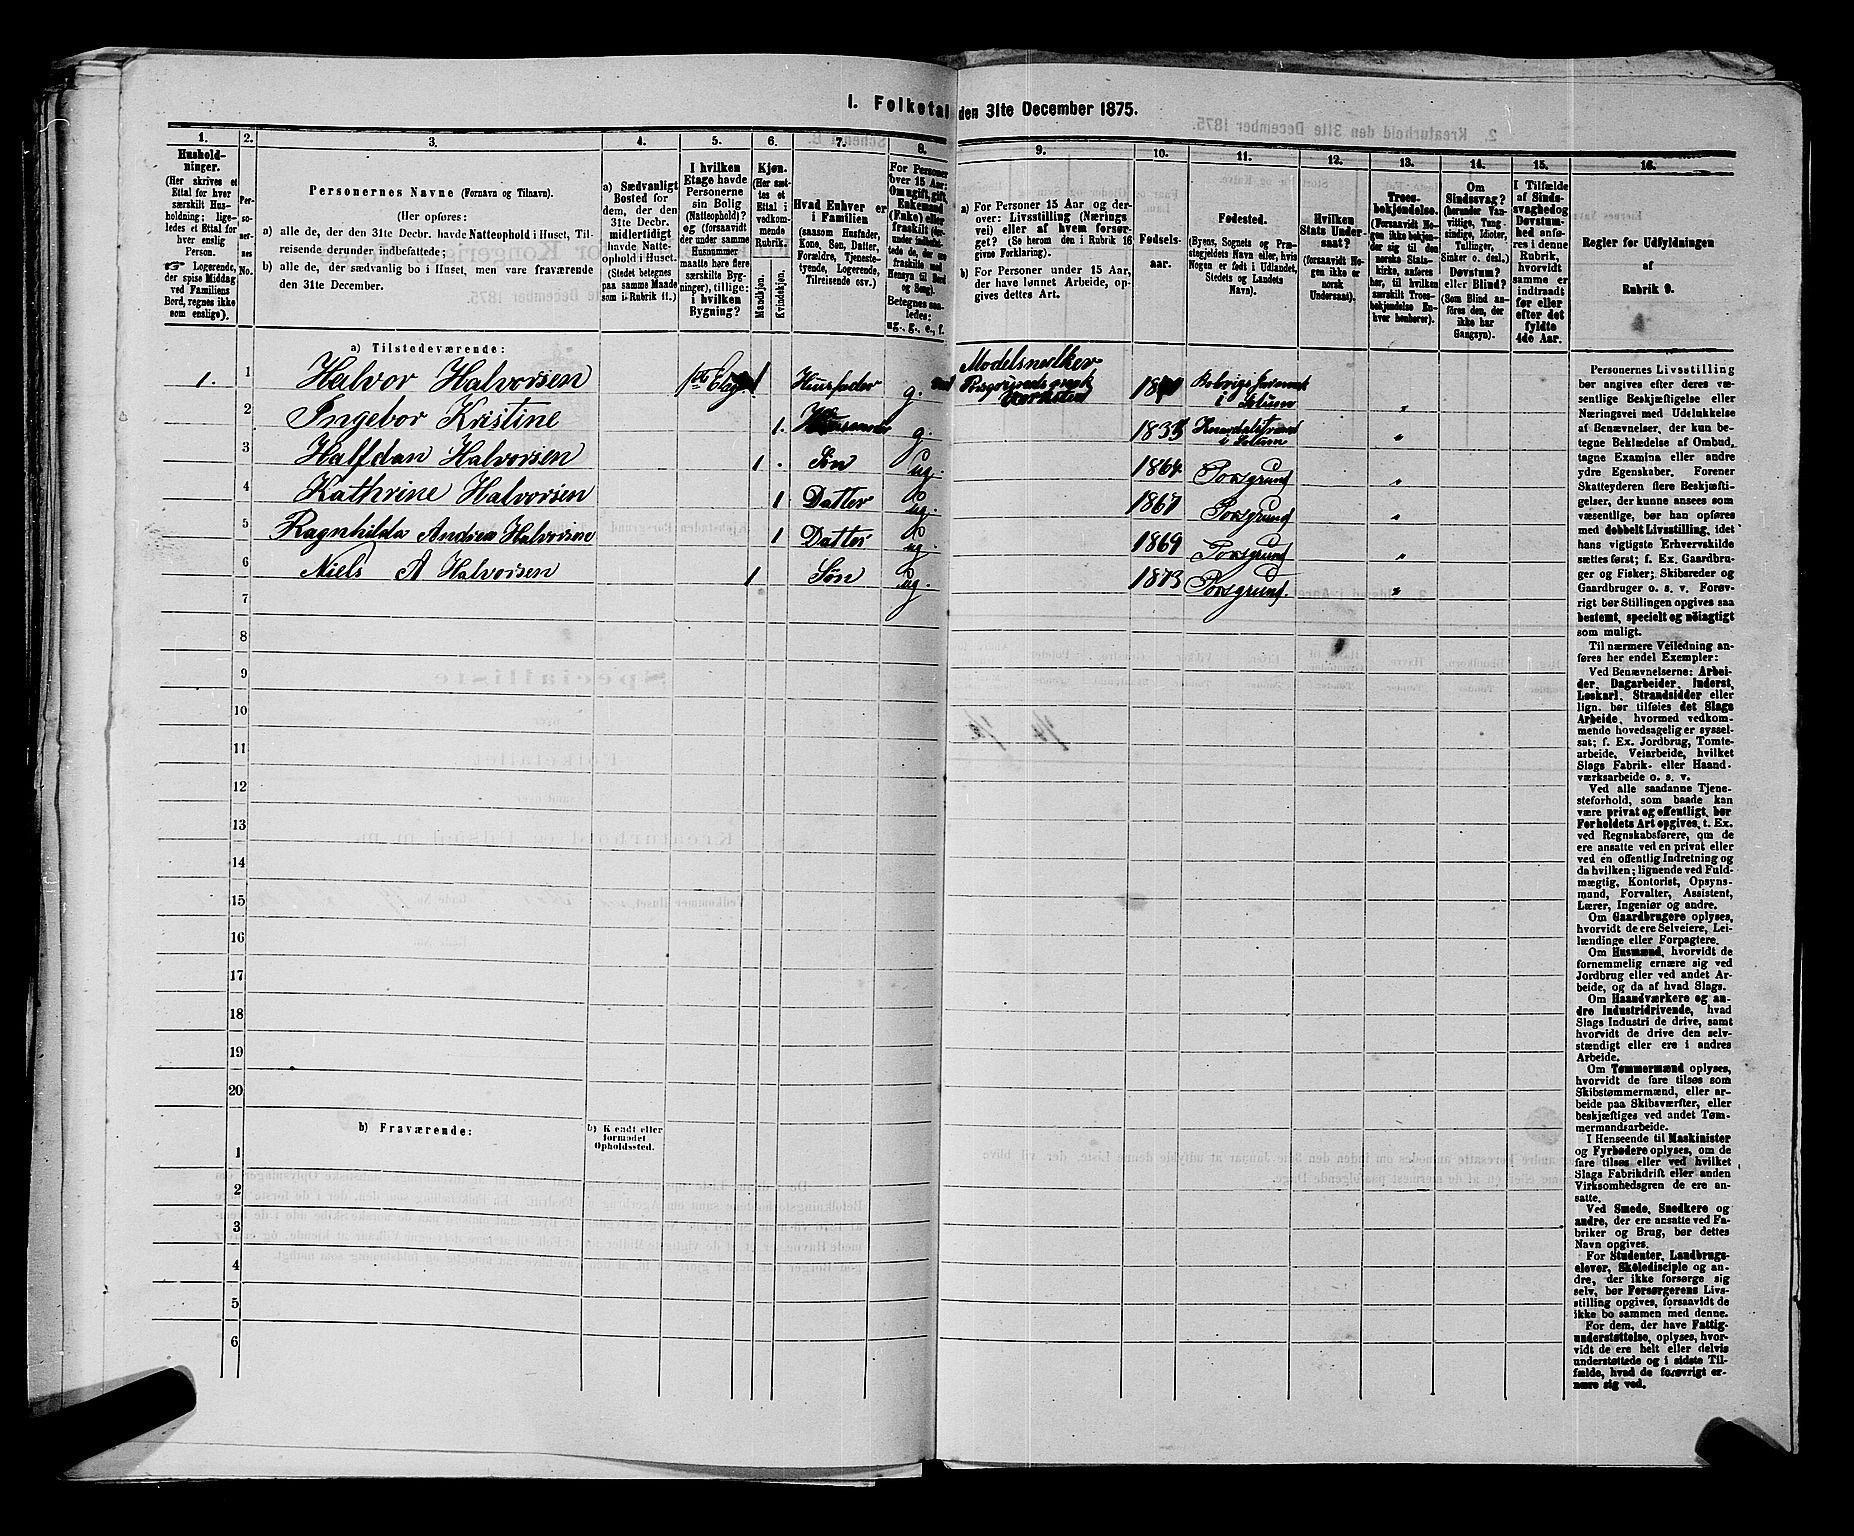 I. Folketal den 31te December 1875.
1. 2. 3. 4. 5. 6. 7. 8. 9. 10. 11. 12. 13. 14. 15. 16.
Hushold-
ninger.
(Her skrives et
Ettal for hver
særskilt Hus-
holdning; lige-
ledes et Ettal
for hver
enslig
Person.
☞ Logerende,
der spise Middag
ved Familiens
Bord, regnes ikke
som enslige).
Per-
so-
ner-
nes
No.
Personernes Navne (Fornavn og Tilnavn).
(Her opføres:
a) alle de, der den 31te Decbr. havde Natteophold i Huset, Til-
reisende derunder indbefattede;
b) alle de, der sædvanlig bo i Huset, men vare fraværende
den 31te December.
a) Sædvanligt
Bosted for
dem, der den
31te Decbr.
midlertidigt
havde Natte-
ophold i Huset.
(Stedet betegnes
paa samme Maade
som i Rubrik 11.)
I hvilken
Etage havde
Personerne
sin Bolig
(Natteophold)?
og (forsaavidt
der under samme
Husnummer
maatte høre flere
særskilte Byg-
ninger), tillige:
i hvilken
Bygning?
Kjøn.
(Her sæt-
tes et
Ettal i
vedkom-
mende
Rubrik.
Mandkjøn.
Kvindekjøn.
Hvad Enhver er
i Familien
(saasom Husfader,
Kone, Søn, Datter,
Forældre, Tjeneste-
tyende, Logerende,
Tilreisende osv.)
For Personer
over 15 Aar:
Om ugift, gift,
Enkemand
(Enke) eller
fraskilt
Betegnes saa-
ledes:
ug., g., e., f.
a) For Personer 15 Aar og der-
over: Livsstilling (Nærings
vei) eller af hvem forsør-
get? (Se herom den i Rubrik 16
givne Forklaring).
b) For Personer under 15 Aar,
der have lønnet Arbeide, op-
gives dettes Art.
Fødsels-
aar.
Fødested.
(Byens, Sognets og Præ-
stegjeldets Navn eller, hvis
Nogen er født i Udlandet,
Stedets og Landets
Navn).
Hvilken
Stats Under-
saat?
(forsaavidt No-
gen ikke er
norsk
Undersaat).
Troes-
bekjendelse.
(Forsaavidt No-
gen ikke bekjen-
der sig til den
norske Stats-
kirke, anføres
her, til hvilken
særskilt Troes-
bekjendelse En-
hver henhører).
Om
Sindssvag?
(herunder Van-
vittige, Tung-
sindige, Idioter,
Tullinger,
Sinker o. desl.)
Døvstum?
eller Blind?
(Som Blind an-
føres den, der
ikke har
Gangsyn).
I Tilfælde
af Sinds-
svaghed og
Døvstum-
hed anfø-
res i denne
Rubrik,
hvorvidt
samme er
indtraadt
før eller
efter det
fyldte
4de Aar.
Regler for Udfyldningen
af
Rubrik 9.
a) Tilstedeværende:
1. 1 Halvor Halvorsen 1ste Etage 1 Husfader g. Porsgrund 18 i Solum "
2 Ingebor Kristine 1. g. 1833 i Solum "
3 Halfdan Halvorsen 1. Søn ug. 1864 Porsgrund "
4 Kathrine Halvorsen 1 Datter ug. 1867 Porsgrund "
5 Ragnhilda Andrea Halvorsne 1 Datter ug. 1869 Porsgrund "
6 Niels A Halvorsen 1 Søn ug. 1873 Porsgrund. "
7
8
9
10
11
12
13
14
15
16
17
18
19
20
b) Fraværende:
b) Kjendt eller
formodet
Opholdssted.
1
2
3
4
5
6
Personernes Livsstilling
bør angives efter deres væ-
sentlige Beskjæftigelse eller
Næringsvei med Udelukkelse
af Benævnelser, der kun be-
tegne Beklædelse af Ombud,
tagne Examina eller andre
ydre Egenskaber. Forener
Skatteyderen flere Beskjæfti-
gelser, der kunne ansees som
væsentlige, bør han opføres
med dobbelt Livsstilling, idet
hans vigtigste Erhvervskilde
sættes først; f. Ex. Gaardbru-
ger og Fisker; Skibsreder og
Gaardbruger o. s. v. Forøv-
rigt bør Stillingen opgives saa
bestemt, specielt og nøiagtigt
som muligt.
Til nærmere Veiledning an-
føres her endel Exempler:
Ved Benævnelserne: Arbei-
der, Dagarbeider, Inderst,
Løskarl, Strandsidder eller
lign. bør tilføies det Slags
Arbeide, hvormed vedkom-
mende hovedsagelig er syssel-
sat; f. Ex. Jordbrug, Tomte-
arbeide, Veiarbeide, hvilket
Slags Fabrik- eller Haand-
værksarbeide o. s. v.
Ved alle saadanne Tjene-
steforhold, som baade kan
være privat og offentligt, bør
Forholdets Art opgives, t. Ex.
ved Regnskabsførere, om de
ere ansatte ved en privat eller
ved en offentlig Indretning og
da hvilken; lignende ved Fuld-
mægtig, Kontorist, Opsyns-
mand, Forvalter, Assistent,
Lærer, Ingeniør og andre.
Om Gaardbrugere oplyses,
hvorvidt de ere Selveiere, Lei-
lændinge eller Forpagtere.
Om Husmænd, hvorvidt de
fornemmelig ernære sig ved
Jordbrug eller ved andet Ar-
beide, og da af hvad Slags.
Om Haandværkere og an-
dre Industridrivende, hvad
Slags Industri de drive, samt
hvorvidt de drive den selv-
stændigt eller ere i andres
Arbeide.
Om Tømmermænd oplyses,
hvorvidt de fare tilsøs som
Skibstømmermænd, eller ar-
beide paa Skibsværfter, eller
beskjæftiges ved andet Tøm-
mermandsarbeide.
I Henseende til Maskinister
og Fyrbødere oplyses, om de
fare tilsøs eller ved hvilket
Slags Fabrikdrift eller anden
Virksomhedsgren de ere an-
satte.
Ved Smede, Snedkere og
andre, der ere ansatte ved Fa-
briker og Brug, bør dettes
Navn opgives.
For Studenter, Landbrugs-
elever, Skoledisciple og an-
dre, der ikke forsørge sig
selv, bør Forsørgerens Livs-
stilling opgives, forsaavidt de
ikke bo sammen med denne.
For dem, der have Fattig-
understøttelse, oplyses, hvor-
vidt de ere helt eller delvis
understøttede og i sidste Til-
fælde, hvad de forøvrigt er-
nære sig ved.